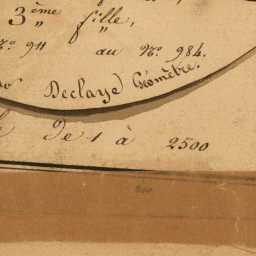 3ème fille,
No. 911 au No. 984.
Declaye Géomètre.
De 1 à 2500